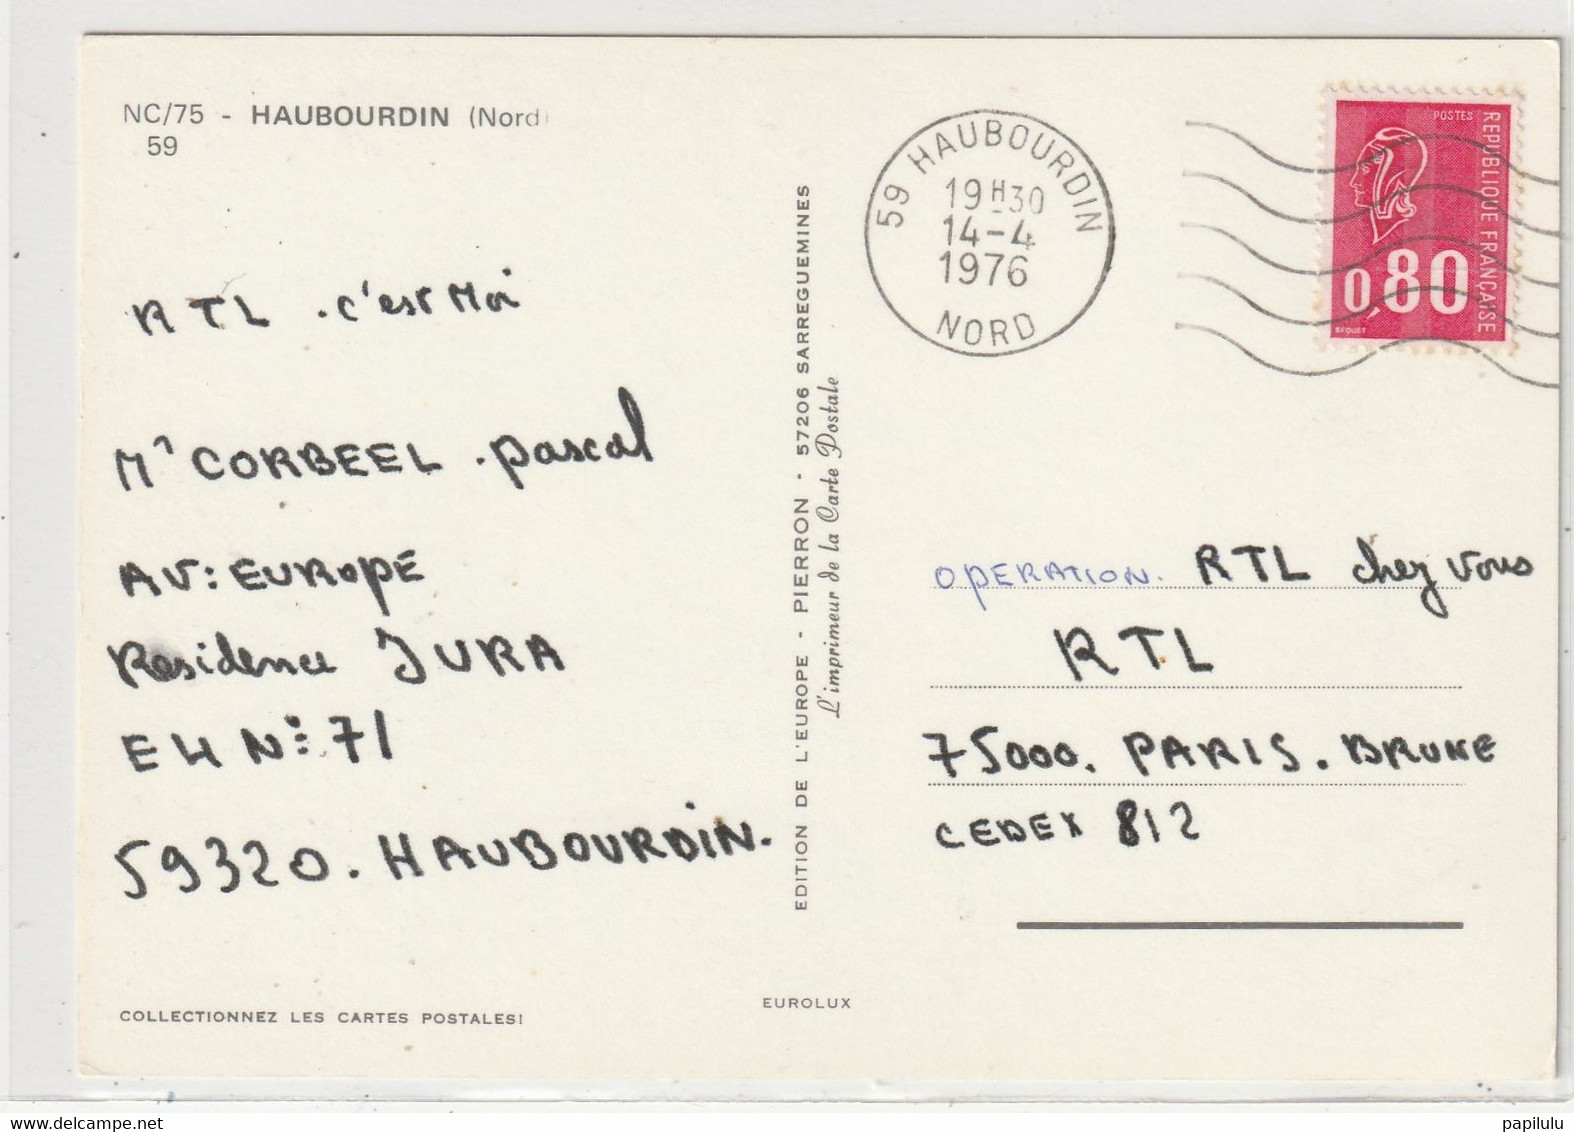 NC/75 - HAUBOURDIN (Nord)
59
RTL . c'est Moi
Mr CORBEEL . pascal
AV: EUROPE
Residence JURA
E4 N°: 71
59320. HAUBOURDIN.
COLLECTIONNEZ LES CARTES POSTALES!
EDITION DE L'EUROPE - PIERRON - 57206 SARREGUEMINES
L'imprimeur de la Carte Postale
EUROLUX
59 HAUBOURDIN
19H30
14-4
1976
NORD
POSTES
REPUBLIQUE FRANÇAISE
0,80
BEQUET
OPERATION. RTL chez vous
RTL
75000. PARIS. BRUNE
CEDEX 812
papilulu